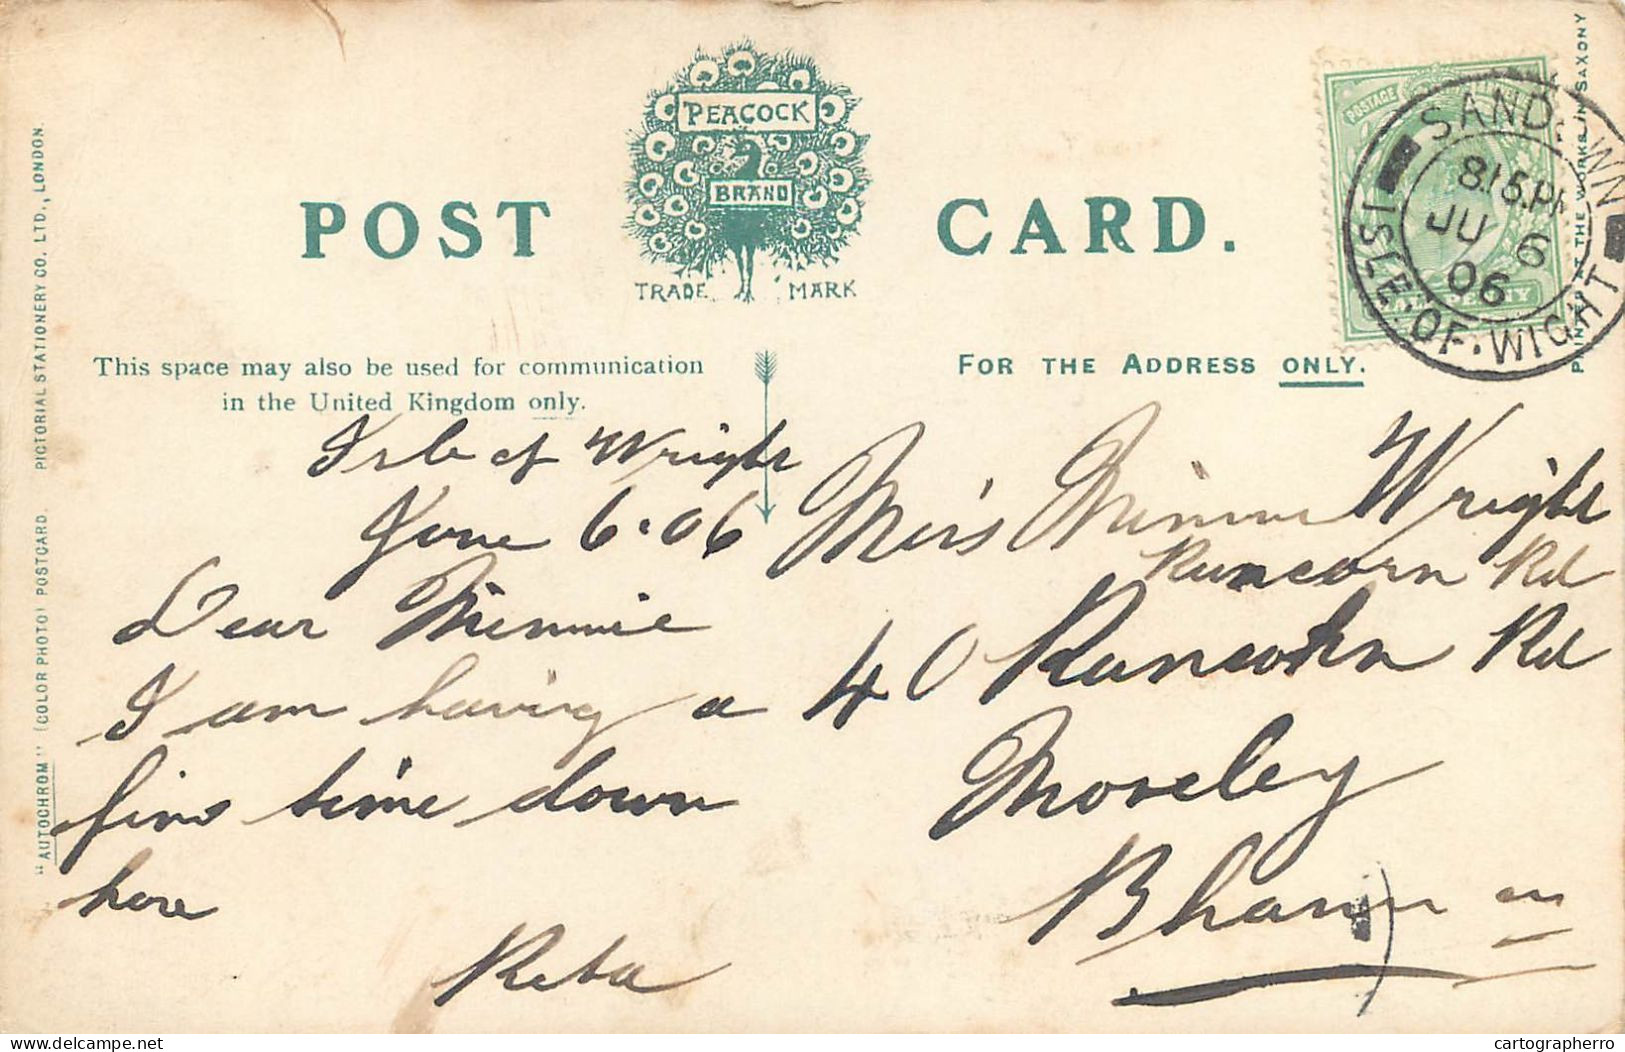 POST CARD.
PEACOCK
BRAND
TRADE MARK
This space may also be used for communication
in the United Kingdom only.
FOR THE ADDRESS ONLY.
"AUTOCHROM" (COLOR PHOTO) POSTCARD. PICTORIAL STATIONERY CO. LTD., LONDON.
PRINTED AT THE WORKS IN SAXONY
POSTAGE
HALFPENNY
SANDOWN
8.15.PM
JU 6
06
ISLE.OF.WIGHT
Isle of Wright
June 6.06
Dear Minnie
I am having a
fine time down
here
Reba
Miss Minnie Wright
Runcorn Rd
40 Runcorn Rd
Moseley
Bham
delcampe.net
cartographerro